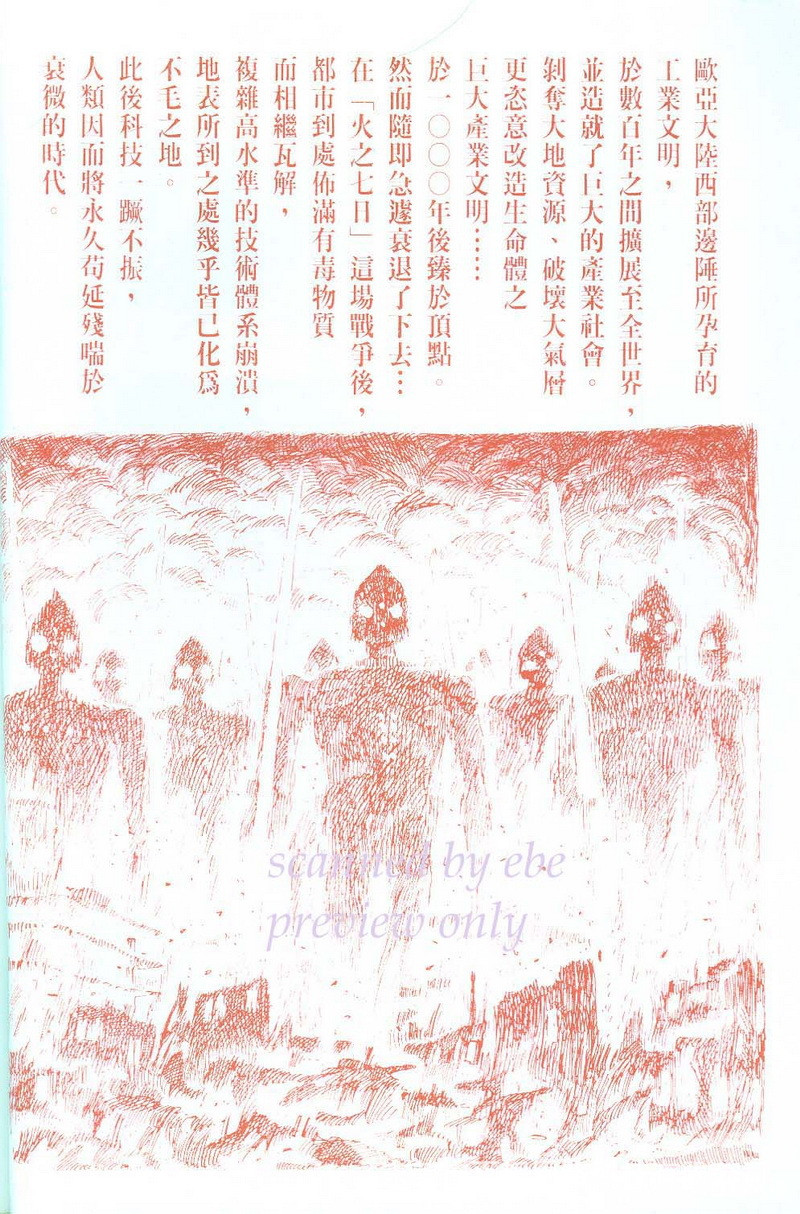 歐亞大陸西部邊陲所孕育的
工業文明，
於數百年之間擴展至全世界，
並造就了巨大的產業社會。
剝奪大地資源、破壞大氣層
更恣意改造生命體之
巨大產業文明……
於一〇〇〇年後臻於頂點。
然而隨即急遽衰退了下去…
在「火之七日」這場戰爭後，
都市到處佈滿有毒物質
而相繼瓦解，
複雜高水準的技術體系崩潰，
地表所到之處幾乎皆已化為
不毛之地。
此後科技一蹶不振，
人類因而將永久苟延殘喘於
衰微的時代。
scanned by ebe
preview only